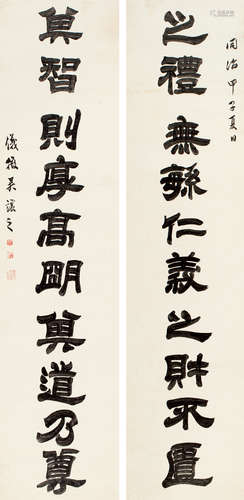 同治甲子夏日
之禮無繇仁義之財不匱
其智則厚高朙其道乃尊
儀徵吳讓之